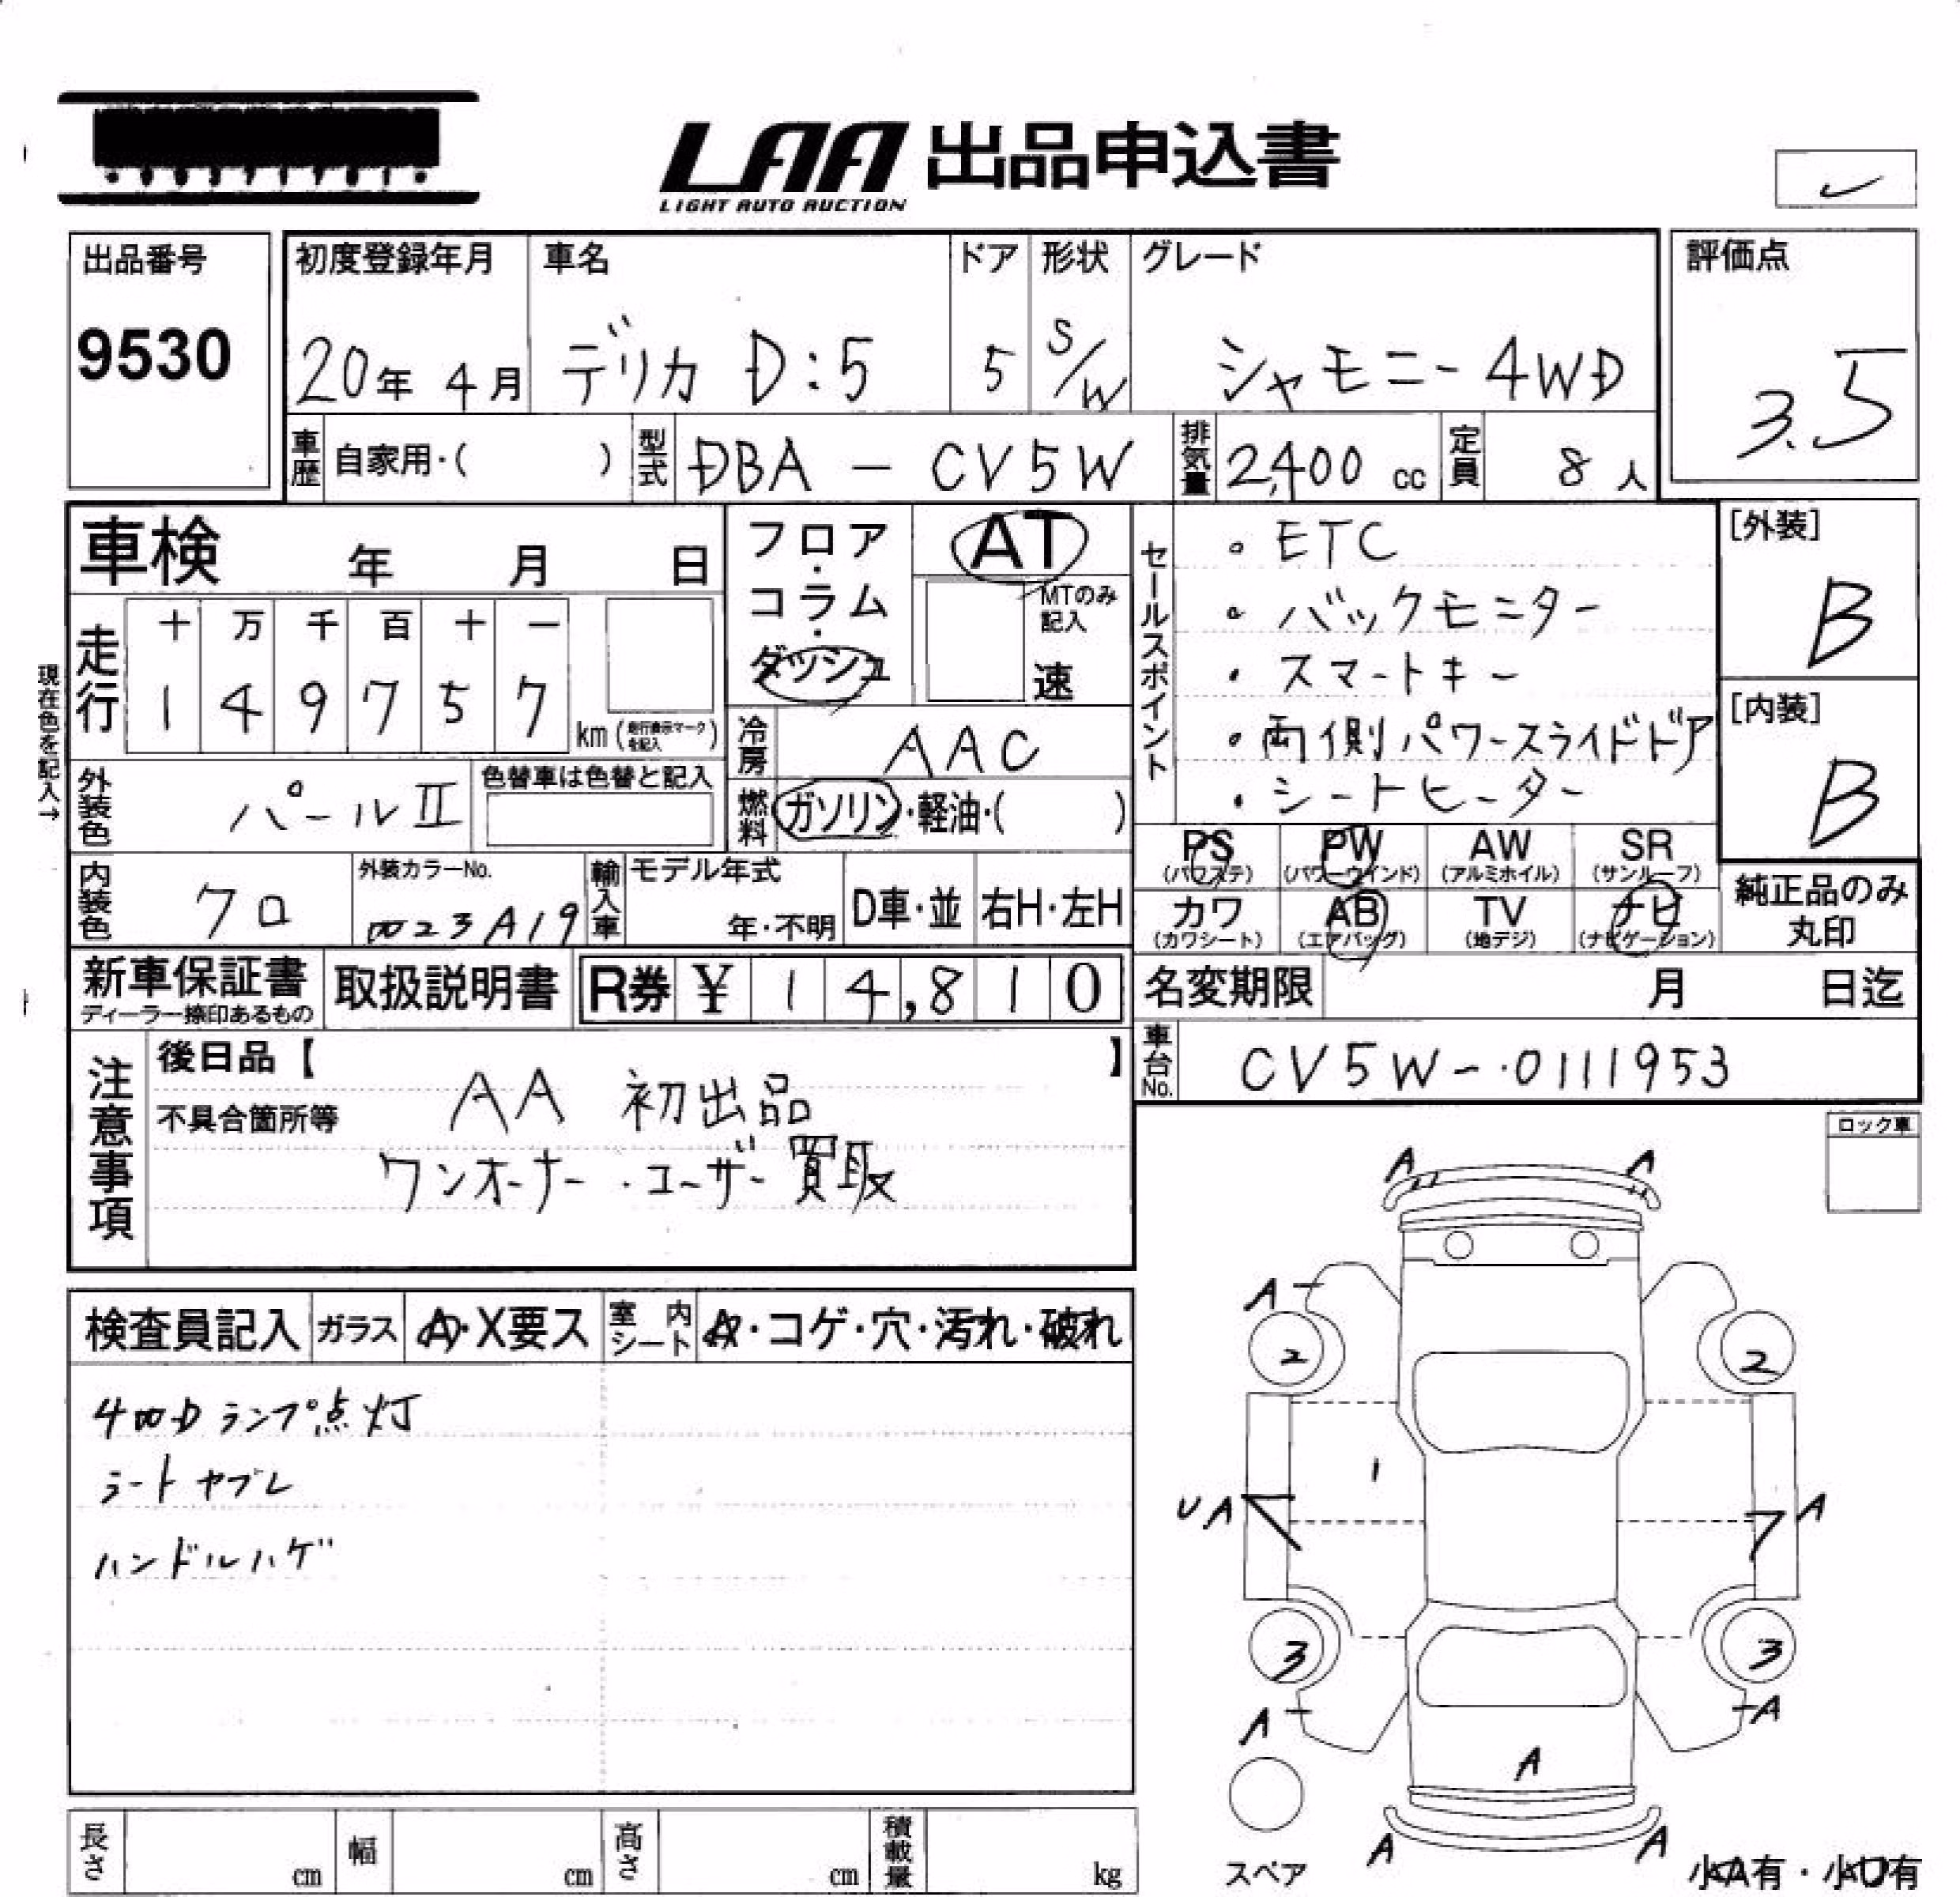 LAA 出品申込書
LIGHT AUTO AUCTION
出品番号
9530
初度登録年月
20年 4月
車名
デリカ D:5
ドア
5
形状
S/W
グレード
シャモニー 4WD
評価点
3.5
車歴 自家用・( )
型式 DBA - CV5W
排気量 2,400 cc
定員 8 人
車検 年 月 日
フロア・コラム・ダッシュ
AT
MTのみ記入
速
現在色を記入→
走行
十 万 千 百 十 一
1 4 9 7 5 7
km (走行表示マークを記入)
冷房 AAC
外装色 パールⅡ
色替車は色替と記入
燃料 ガソリン・軽油・( )
内装色 クロ
外装カラーNo.
輸入車
モデル年式
年・不明
D車・並
右H・左H
セールスポイント
・ETC
・バックモニター
・スマートキー
・両側パワースライドドア
・シートヒーター
[外装]
B
[内装]
B
PS (パワステ)
PW (パワーウインド)
AW (アルミホイル)
SR (サンルーフ)
カワ (カワシート)
AB (エアバッグ)
TV (地デジ)
ナビ (ナビゲーション)
純正品のみ丸印
新車保証書
ディーラー捺印あるもの
取扱説明書
R券 ¥ 14,810
名変期限 月 日迄
車台No. CV5W-0111953
注意事項
後日品【 】
不具合箇所等
AA 初出品
ワンオーナー・ユーザー買取
ロック車
検査員記入
ガラス A・X要ス
室内シート A・コゲ・穴・汚れ・破れ
4WD ランプ点灯
シートヤブレ
ハンドルハゲ
A A
A
2 2
1
UA A
3 3
A A
A
A A
スペア
小A有・小U有
長さ cm
幅 cm
高さ cm
積載量 kg